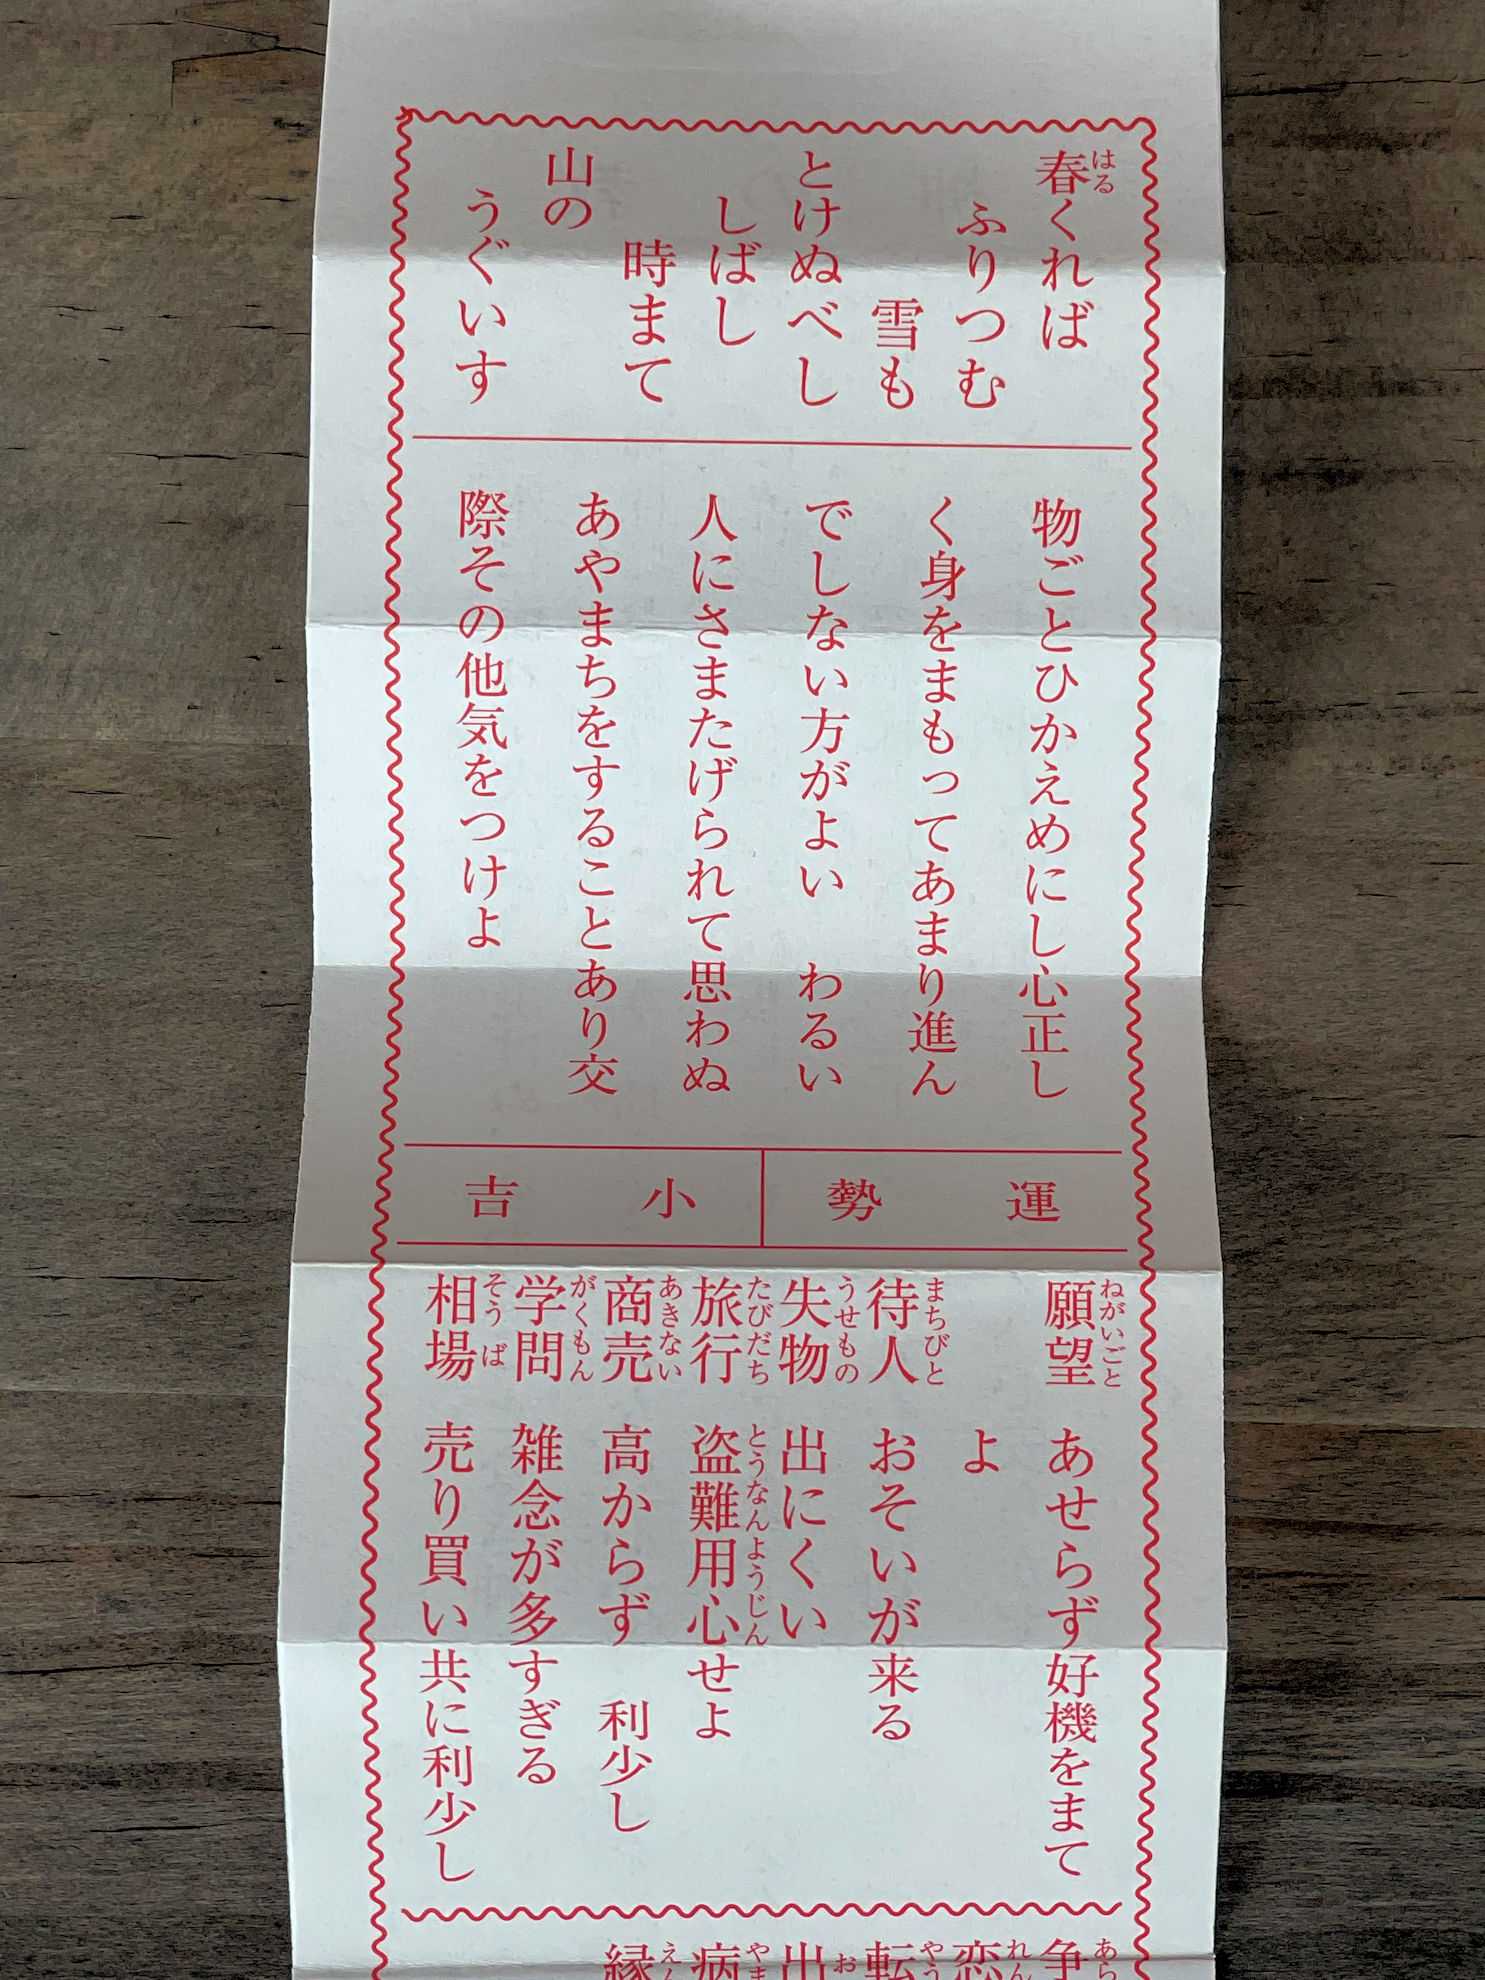 春くれば
ふりつむ
雪も
とけぬべし
しばし
時まて
山の
うぐいす
物ごとひかえめにし心正し
く身をまもってあまり進ん
でしない方がよい わるい
人にさまたげられて思わぬ
あやまちをすることあり交
際その他気をつけよ
運勢 小吉
願望 あせらず好機をまて
よ
待人 おそいが来る
失物 出にくい
旅行 盗難用心せよ
商売 高からず 利少し
学問 雑念が多すぎる
相場 売り買い共に利少し
争
恋
転
出
病
縁